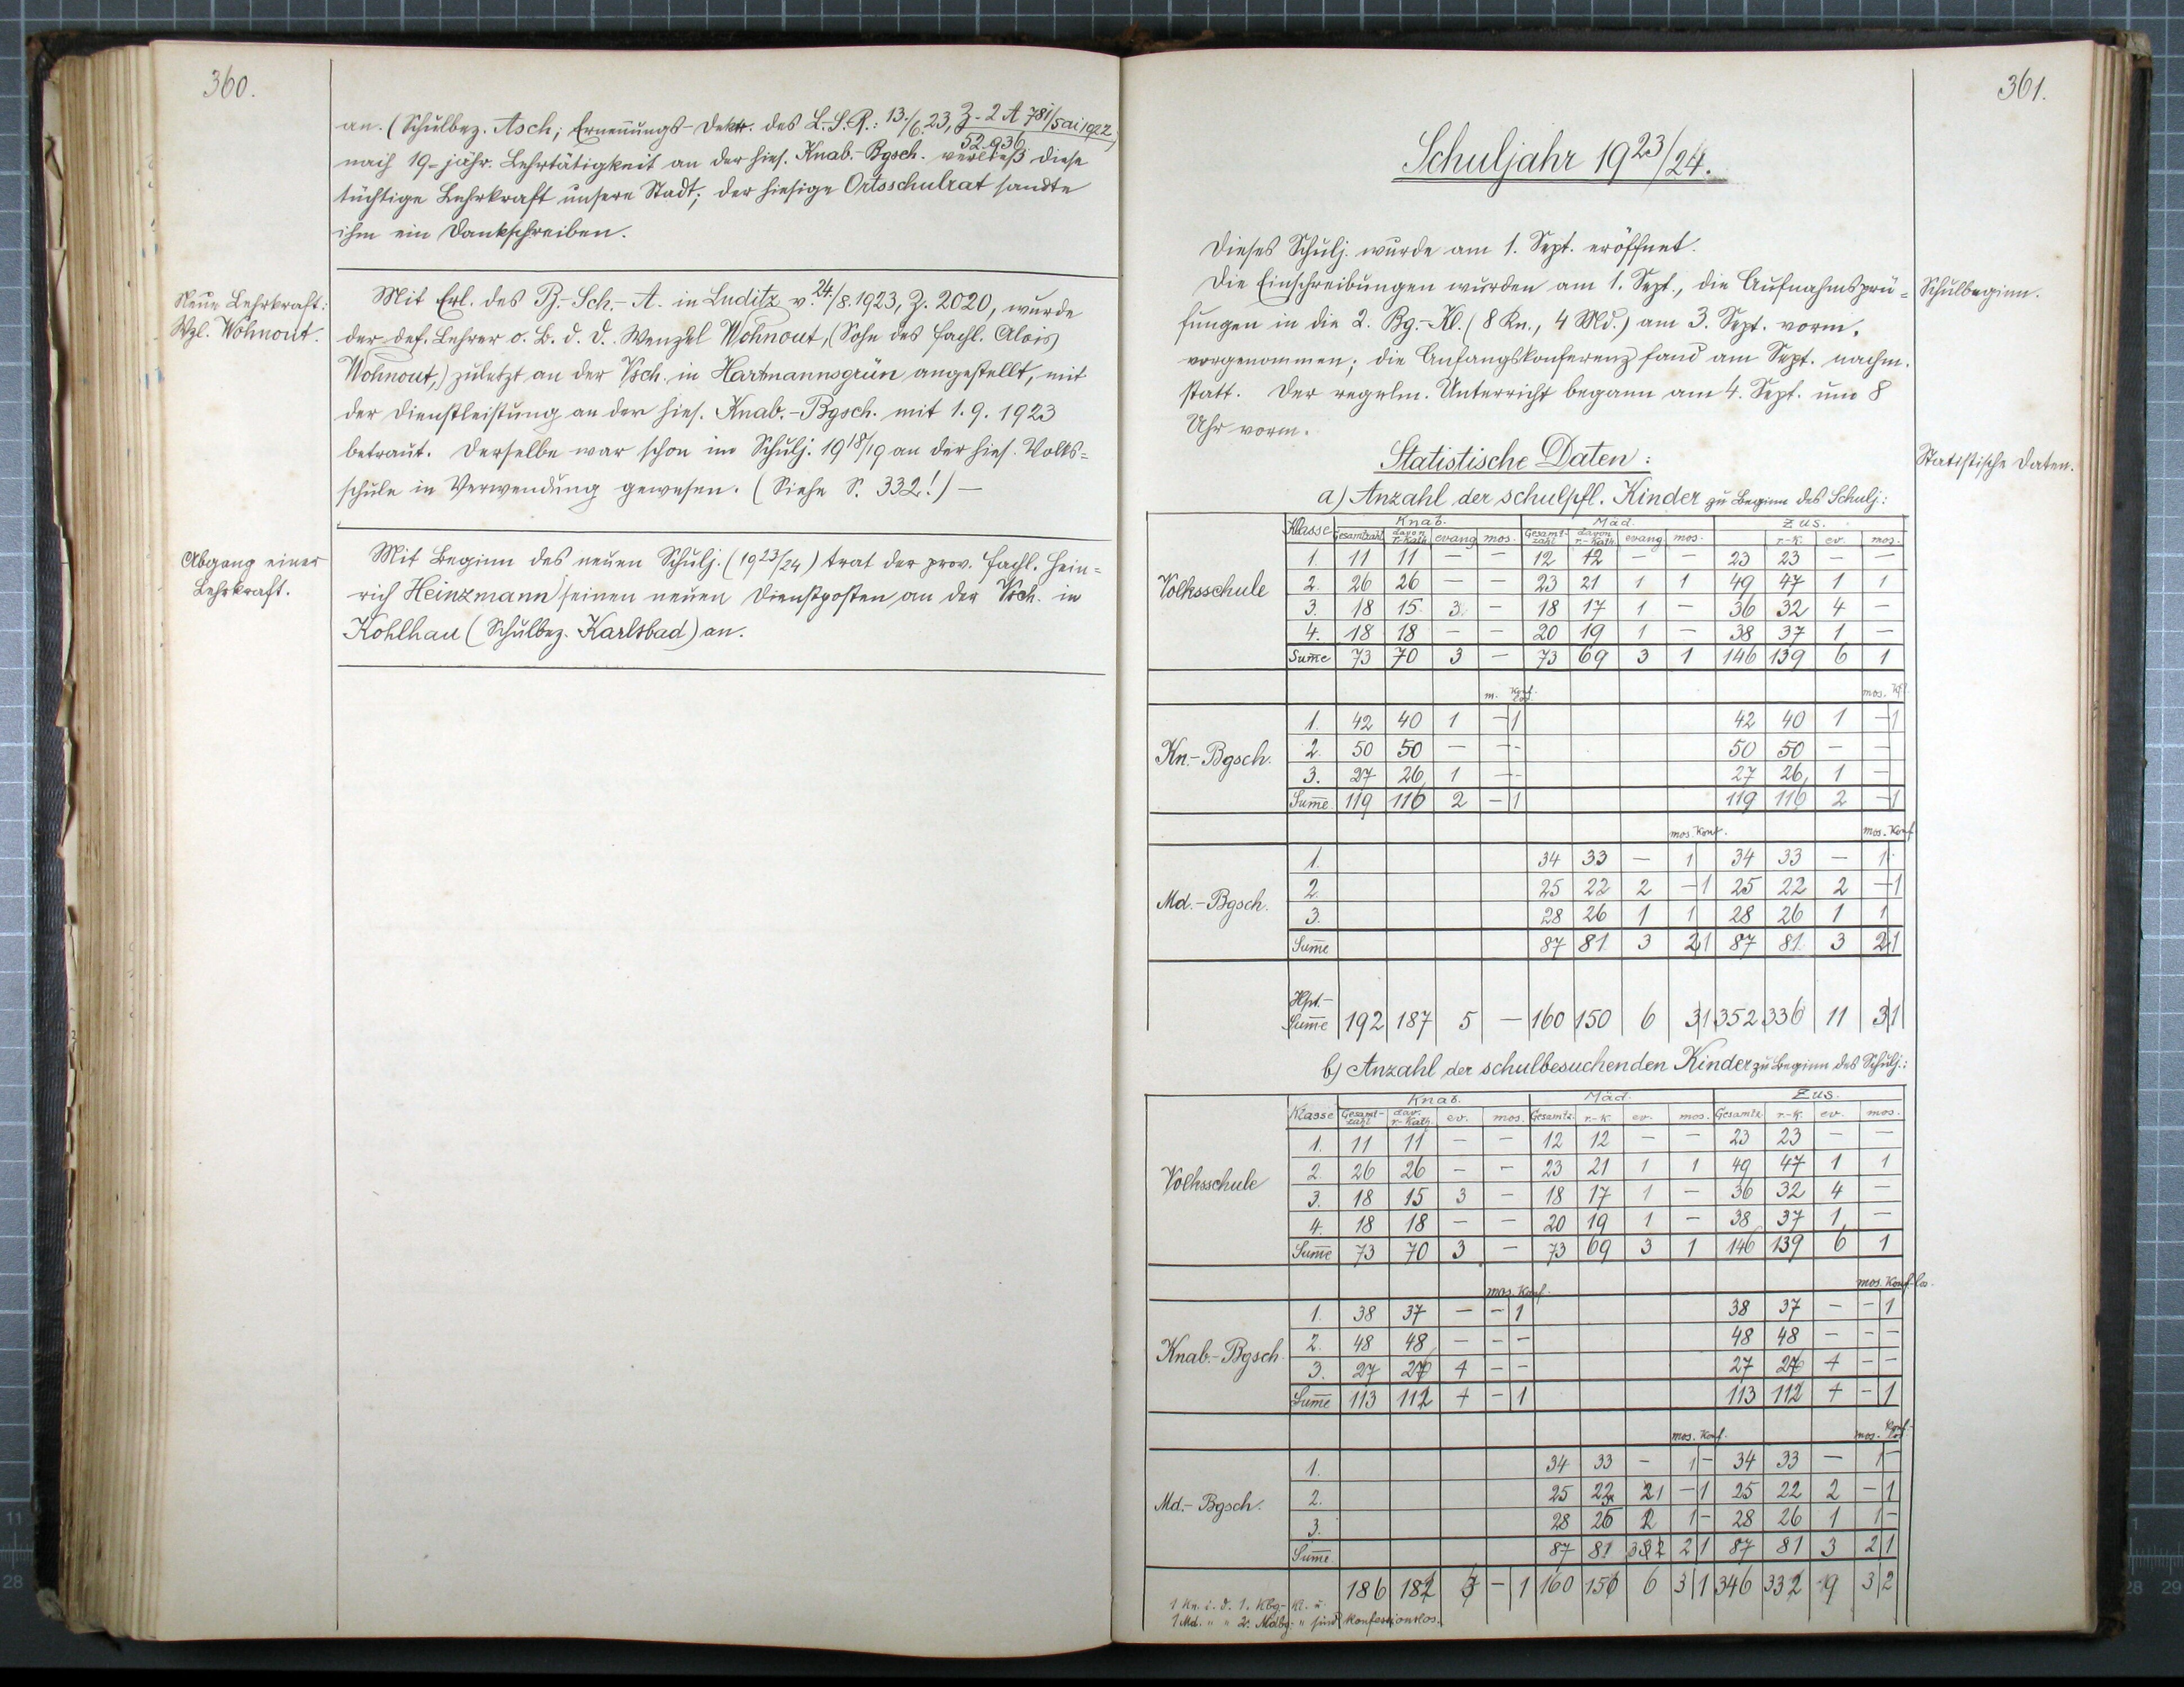 360.
an. (Schulbez. Asch; Ernennungs-Dekr. des L.-S.-R.: 13./6.23, Z-2 A 781/5 ai 1922)
52.936
nach 19-jähr. Lehrtätigkeit an der hies. Knab.-Bgsch. verließ diese
tüchtige Lehrkraft unsere Stadt; der hiesige Ortsschulrat sandte
ihm ein Dankschreiben.
Neue Lehrkraft:
Wzl. Wohnout.
Mit Erl. des B.-Sch.-A. in Luditz v. 24./8.1923, Z. 2020, wurde
der def. Lehrer o. B. d. D. Wenzel Wohnout, (Sohn des Fachl. Alois
Wohnout,) zuletzt an der Vsch. in Hartmannsgrün angestellt, mit
der Dienstleistung an der hies. Knab.-Bgsch. mit 1. 9. 1923
betraut. Derselbe war schon im Schulj. 1918/19 an der hies. Volks=
schule in Verwendung gewesen. (Siehe S. 332!) —
Abgang einer
Lehrkraft.
Mit Beginn des neuen Schulj. (1923/24) trat der prov. Fachl. Hein=
rich Heinzmann seinen neuen Dienstposten an der Vsch. in
Kohlhau (Schulbez. Karlsbad) an.
361.
Schuljahr 1923/24.
Dieses Schulj. wurde am 1. Sept. eröffnet.
Schulbeginn.
Die Einschreibungen wurden am 1. Sept., die Aufnahmsprü=
fungen in die 2. Bg.-Kl. (8 Kn., 4 Md.) am 3. Sept. vorm.
vorgenommen; die Anfangskonferenz fand am Sept. nachm.
statt. Der regelm. Unterricht begann am 4. Sept. um 8
Uhr vorm.
Statistische Daten.
Statistische Daten:
a) Anzahl der schulpfl. Kinder zu Beginn des Schulj:
Klasse Knab. Mäd. Zus.
Gesamtzahl davon r-kath. evang mos. Gesamt-zahl davon r-kath. evang mos. r-k. ev. mos.
Volksschule
1. 11 11 — — 12 12 — — 23 23 — —
2. 26 26 — — 23 21 1 1 49 47 1 1
3. 18 15 3 — 18 17 1 — 36 32 4 —
4. 18 18 — — 20 19 1 — 38 37 1 —
Sume 73 70 3 — 73 69 3 1 146 139 6 1
m. Konf. los. mos. Kfl.
Kn.-Bgsch.
1. 42 40 1 — 1 42 40 1 — 1
2. 50 50 — — 50 50 — —
3. 27 26 1 — 27 26 1 —
Sume. 119 116 2 — 1 119 116 2 — 1
mos. Konf. mos. Konf
Md.-Bgsch.
1. 34 33 — 1 34 33 — 1
2. 25 22 2 — 1 25 22 2 — 1
3. 28 26 1 1 28 26 1 1
Sume 87 81 3 2 1 87 81 3 2 1
Hpt.-
Sume 192 187 5 — 160 150 6 3 1 352 336 11 3 1
b) Anzahl der schulbesuchenden Kinder zu Beginn des Schulj.:
Klasse Knab. Mäd. Zus.
Gesamt-zahl dav. r-kath. ev. mos. Gesamtz. r.-k ev. mos. Gesamtz. r.-k. ev. mos.
Volksschule
1. 11 11 — — 12 12 — — 23 23 — —
2. 26 26 — — 23 21 1 1 49 47 1 1
3. 18 15 3 — 18 17 1 — 36 32 4 —
4. 18 18 — — 20 19 1 — 38 37 1 —
Sume 73 70 3 — 73 69 3 1 146 139 6 1
mos. Konf. mos. Konf. los.
Knab.-Bgsch.
1. 38 37 — — 1 38 37 — — 1
2. 48 48 — — — 48 48 — — —
3. 27 — — 27 — —
Sume 113 112 — 1 113 112 — 1
mos. Konf. mos. Konf.-
Md.-Bgsch.
1. 34 33 — 1 — 34 33 — 1 —
2. 25 22 — 1 25 22 2 — 1
3. 28 1 — 28 26 1 1 —
Sume 87 81 2 1 87 81 3 2 1
186 182 — 1 160 150 6 3 1 346 332 9 3 2
1 Kn. i. d. 1. Kbg-Kl. u.
1 Md. " " 2. Mdbg- " sind konfessionslos.